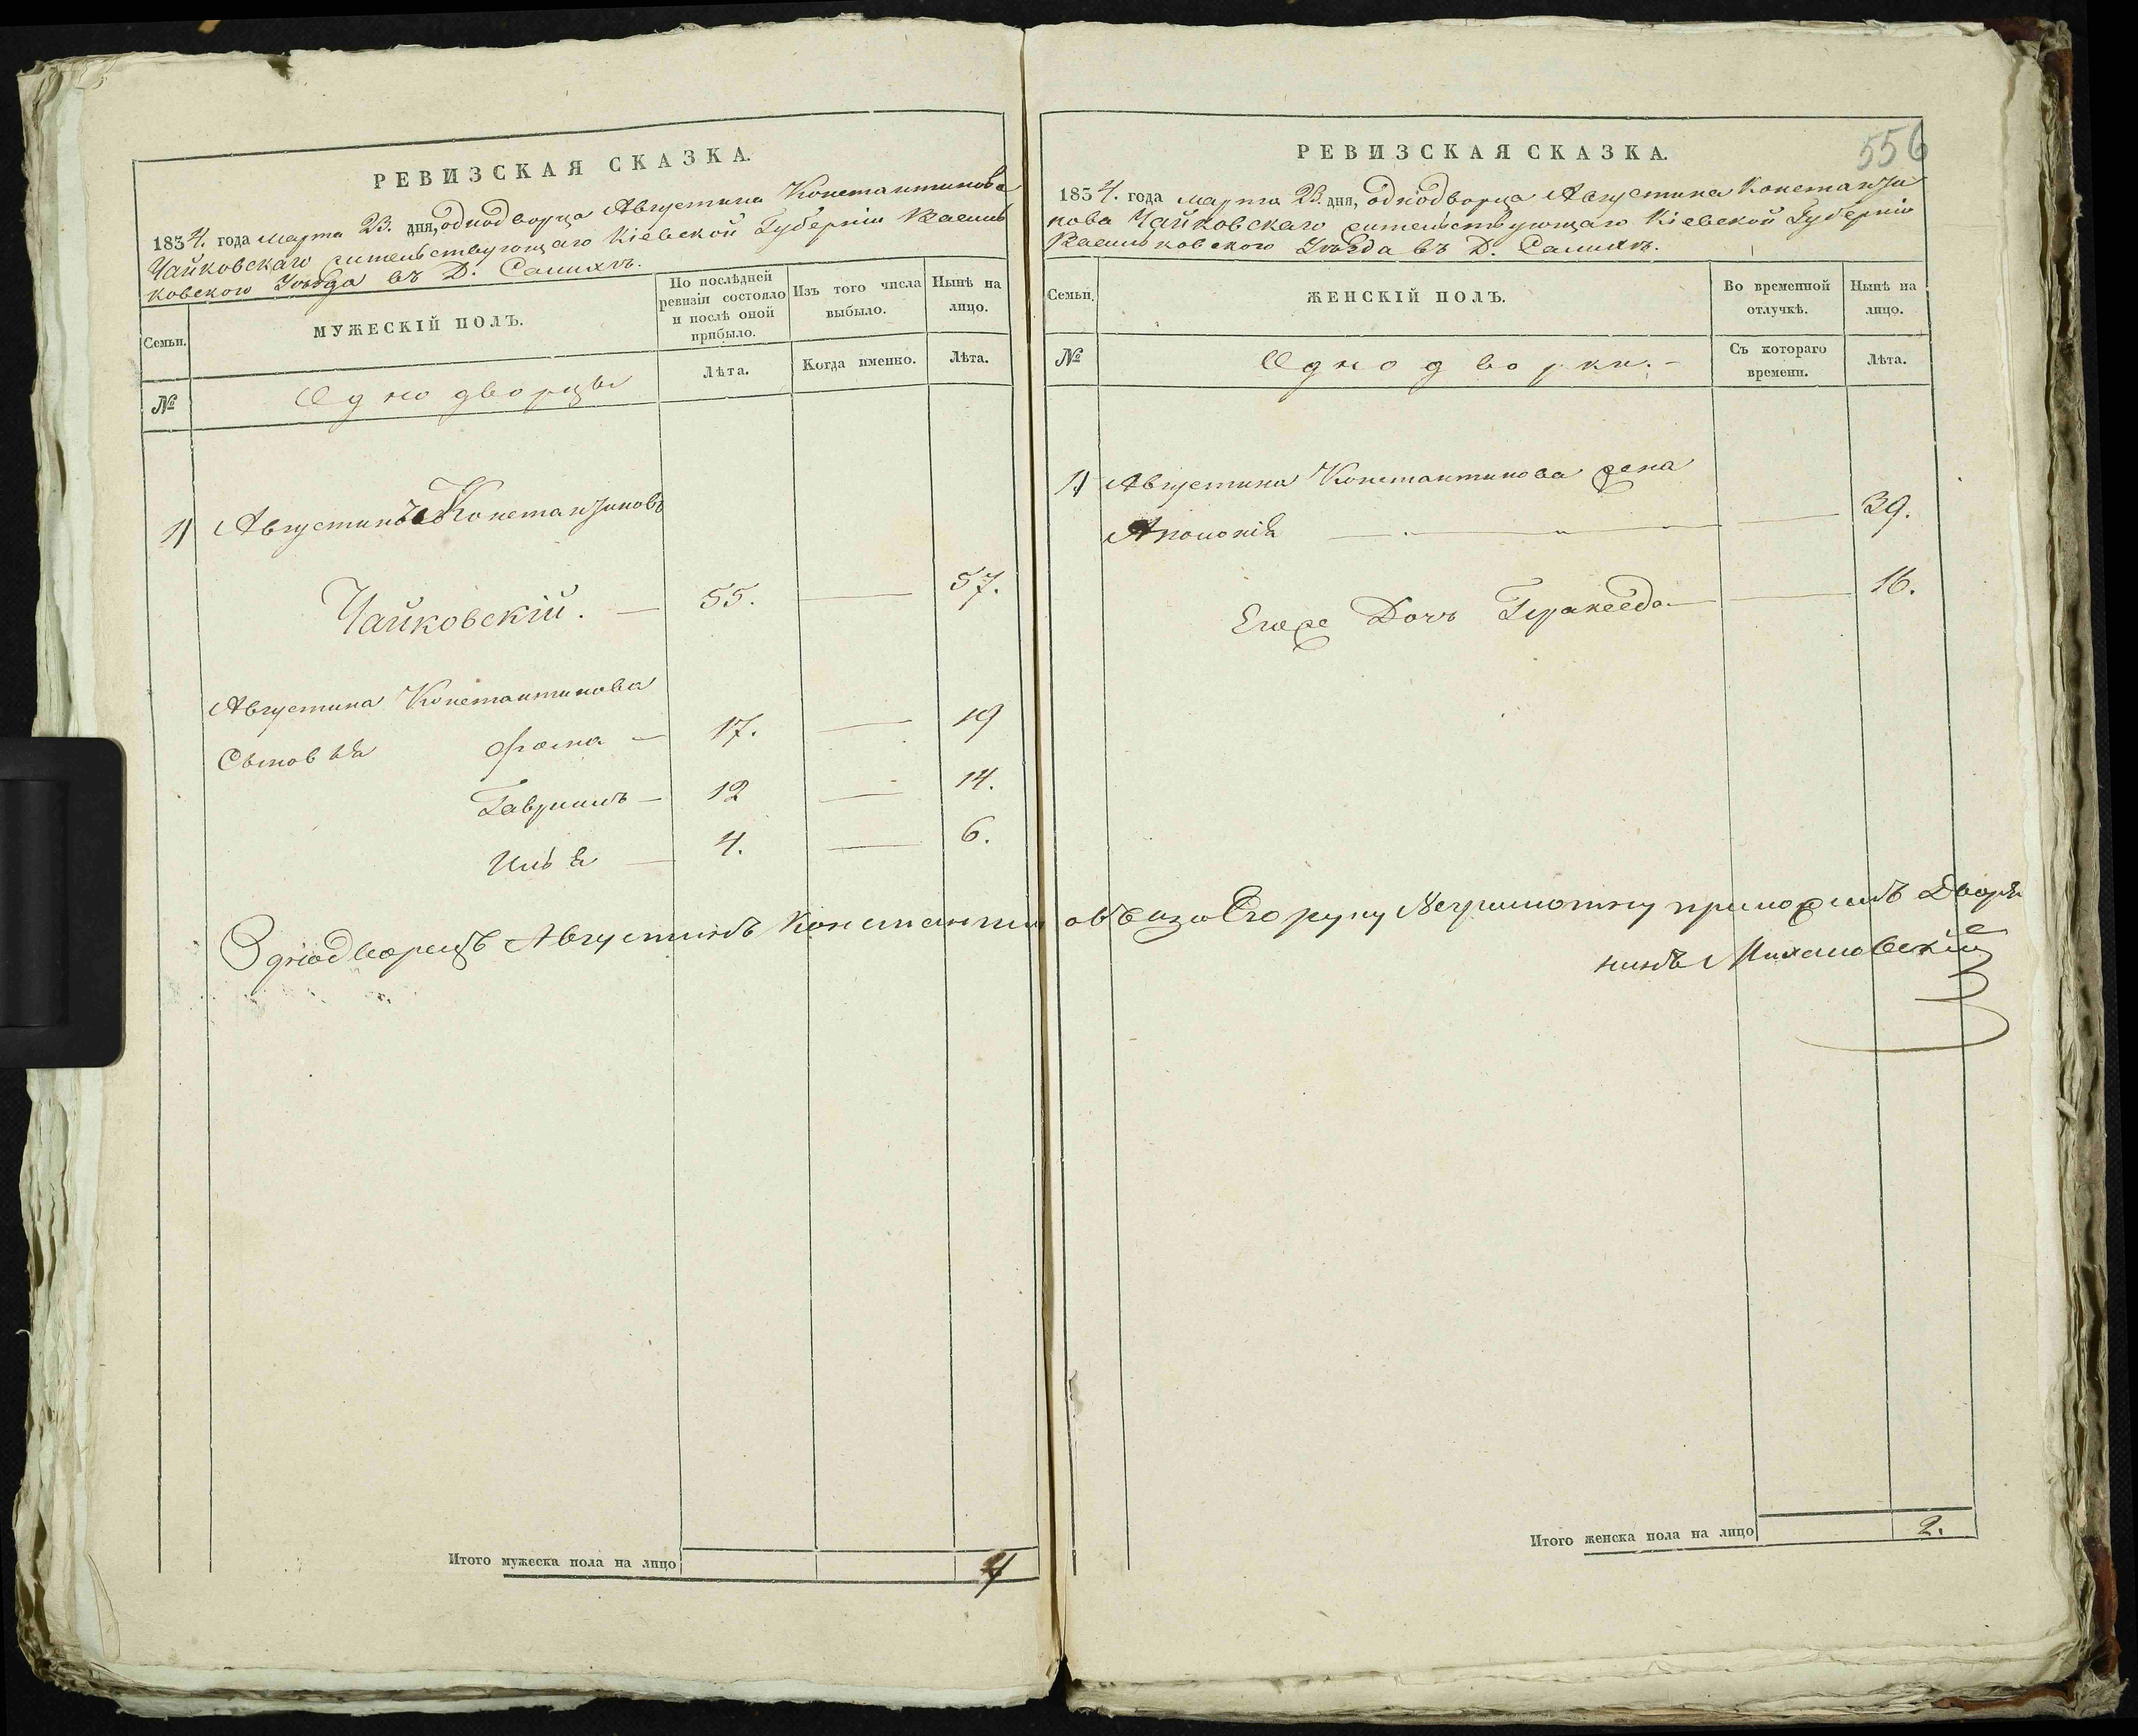 РЕВИЗСКАЯ СКАЗКА.
1854. года марта 23. дня, однодворца Августина Константинова
Чайковскаго жительствующаго Кіевской Губерніи Василь
ковского Уѣзда въ Д.
Семьи.
МУЖЕСКІЙ ПОЛЪ.
По послѣдней
ревизіи состояло
и послѣ оной
прибыло.
Изъ того числа
выбыло.
Нынѣ на
лицо.
№
Однодворцы
Лѣта.
Когда именно.
Лѣта.
1) Августинъ Константиновъ
Чайковскій. — 55. — 57.
Августина Константинова
Сыновья Фома — 17. — 19
Гавріилъ — 12 — 14.
Илья — 4. — 6.
Итого мужеска пола на лицо 4
556
РЕВИЗСКАЯ СКАЗКА.
1854. года марта 23. дня, однодворца Августина Константи
нова Чайковскаго жительствующаго Кіевской Губерніи
Васильковского Уѣзда въ Д.
Семьи.
ЖЕНСКІЙ ПОЛЪ.
Во временной
отлучкѣ.
Нынѣ на
лицо.
№
Однодворки. —
Съ котораго
времени.
Лѣта.
1) Августина Константинова жена
Апполонія — — 39.
Егоже Дочь — — 16.
Однодворецъ Августинъ Константиновъ а за Его руку Неграмотну приложилъ Дворя
нинъ
Итого женска пола на лицо 2.